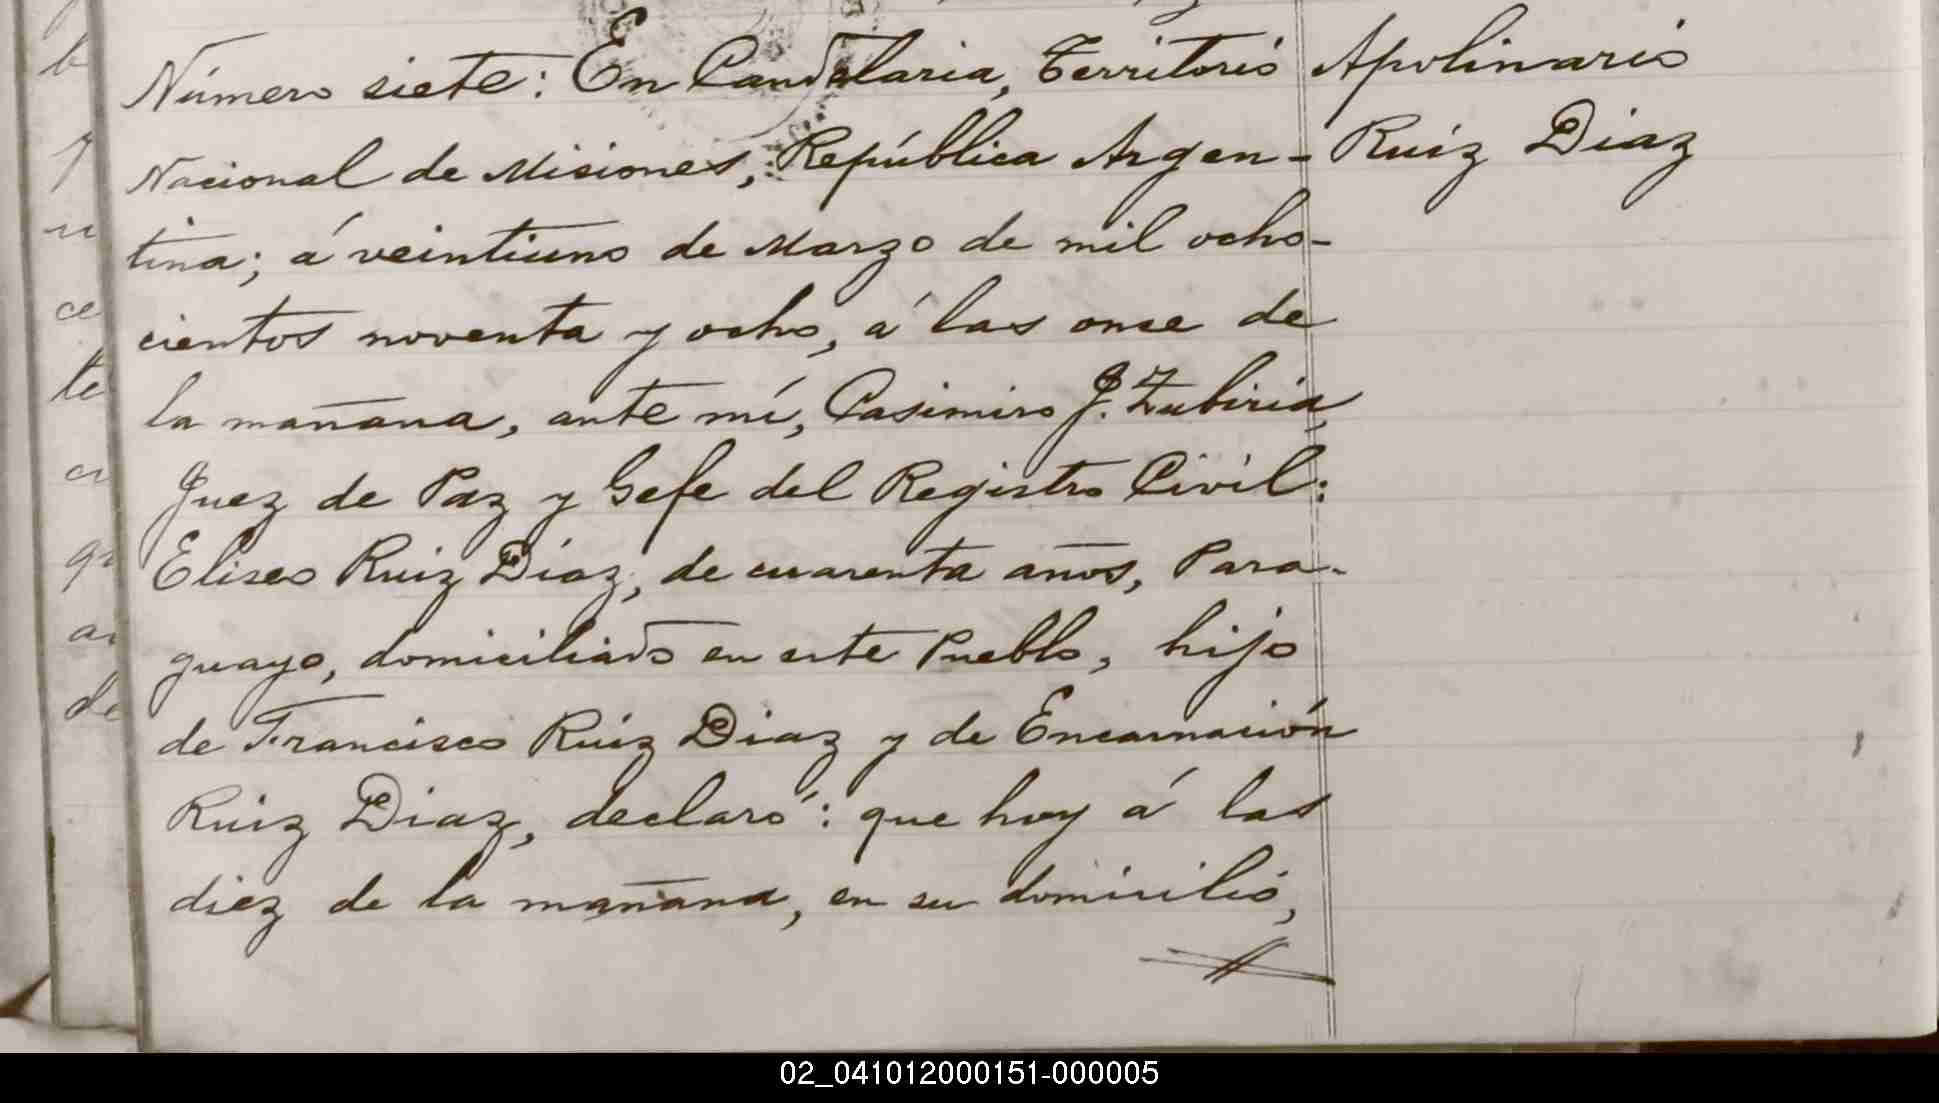 Número siete: En Candelaria, Territorio
Nacional de Misiones, República Argen-
tina; á veintiuno de Marzo de mil ocho-
cientos noventa y ocho, á las once de
la mañana, ante mí, Casimiro J. Zubiria,
Juez de Paz y Gefe del Registro Civil:
Eliseo Ruiz Diaz, de cuarenta años, Para-
guayo, domiciliado en este Pueblo, hijo
de Francisco Ruiz Diaz y de Encarnación
Ruiz Diaz, declaró: que hoy á las
diez de la mañana, en su domicilio,
Apolinario
Ruiz Diaz
b
y
u
ce
te
cu
qu
a
de
02_041012000151-000005